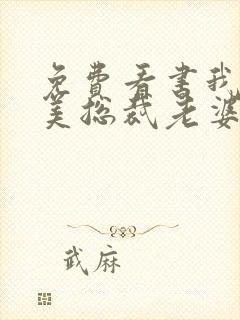 免费看书我
美总裁老婆
武麻